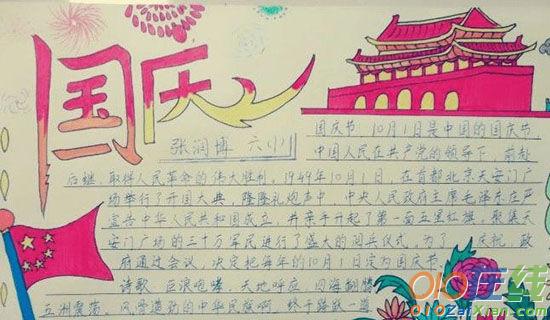 国庆
张润博 六(1)
国庆节,10月1日是中国的国庆节,
中国人民在共产党的领导下,前赴
后继,取得人民革命的伟大胜利,1949年10月1日,在首都北京天安门广
场举行了开国大典,隆隆礼炮声中,中央人民政府主席毛泽东庄严
宣告中华人民共和国成立,并亲手升起了第一面五星红旗,聚集天
安门广场的三十万军民进行了盛大的阅兵仪式,为了 庆祝,政
府通过会议,决定把每年的10月1日定为国庆节。
诗歌,巨浪咆哮,天地呼应,四海翻腾
五洲震荡,风雷激励的中华民族啊
在线
ZaiXian.com